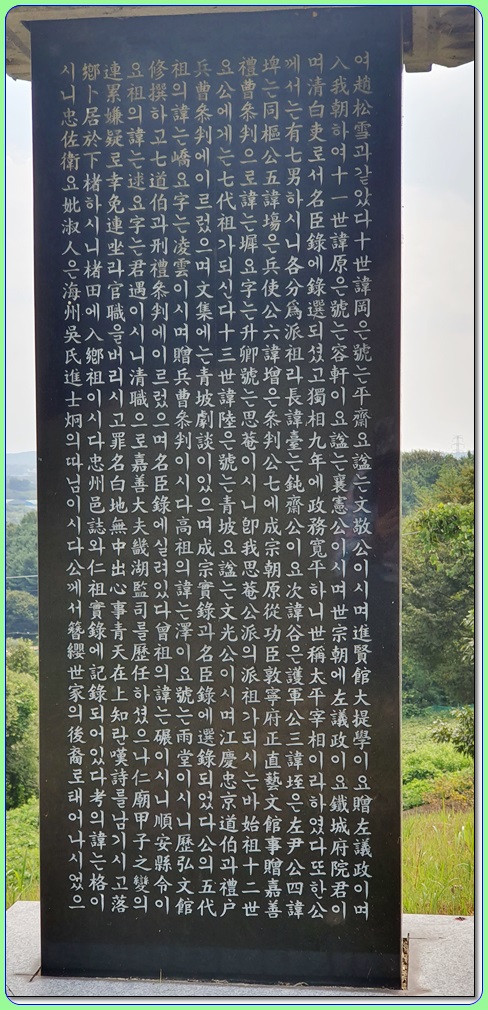 여趙松雪과같았다十世諱岡은號는平齋요諡는文敬公이시며進賢館大提學이요贈左議政이며
入我朝하여十一世諱原은號는容軒이요諡는襄憲公이시며世宗朝에左議政이요鐵城府院君이
며清白吏로서名臣錄에錄選되셨고獨相九年에政務寬平하니世稱太平宰相이라하였다또한公
께서는有七男하시니各分爲派祖라長諱臺는鈍齋公이요次諱谷은護軍公三諱垤은左尹公四諱
埤는同樞公五諱塲은兵使公六諱增은叅判公七에成宗朝原從功臣敦寧府正直藝文館事贈嘉善
禮曹叅判으로諱는墀요字는升卿號는思菴이시니卽我思菴公派의派祖가되시는바始祖十二世
요公에게는七代祖가되신다十三世諱陸은號는青坡요諡는文光公이시며江慶忠京道伯과禮戶
兵曹叅判에이르렀으며文集에는青坡劇談이있으며成宗實錄과名臣錄에選錄되었다公의五代
祖의諱는嶠요字는凌雲이시며贈兵曹叅判이시다高祖의諱는澤이요號는雨堂이시니歷弘文館
修撰하고七道伯과刑禮叅判에이르렀으며名臣錄에실려있다曾祖의諱는碾이시니順安縣令이
요祖의諱는逑요字는君遇이시니清職으로嘉善大夫畿湖監司를歷任하셨으나仁廟甲子之變의
連累嫌疑로幸免連坐라官職을버리시고罪名白地無中出心事青天在上知란嘆詩를남기시고落
鄉卜居於下楮하시니楮田에入鄉祖이시다忠州邑誌와仁祖實錄에記錄되어있다考의諱는格이
시니忠佐衛요妣淑人은海州吳氏進士炯의따님이시다公께서簪纓世家의後裔로태어나시었으